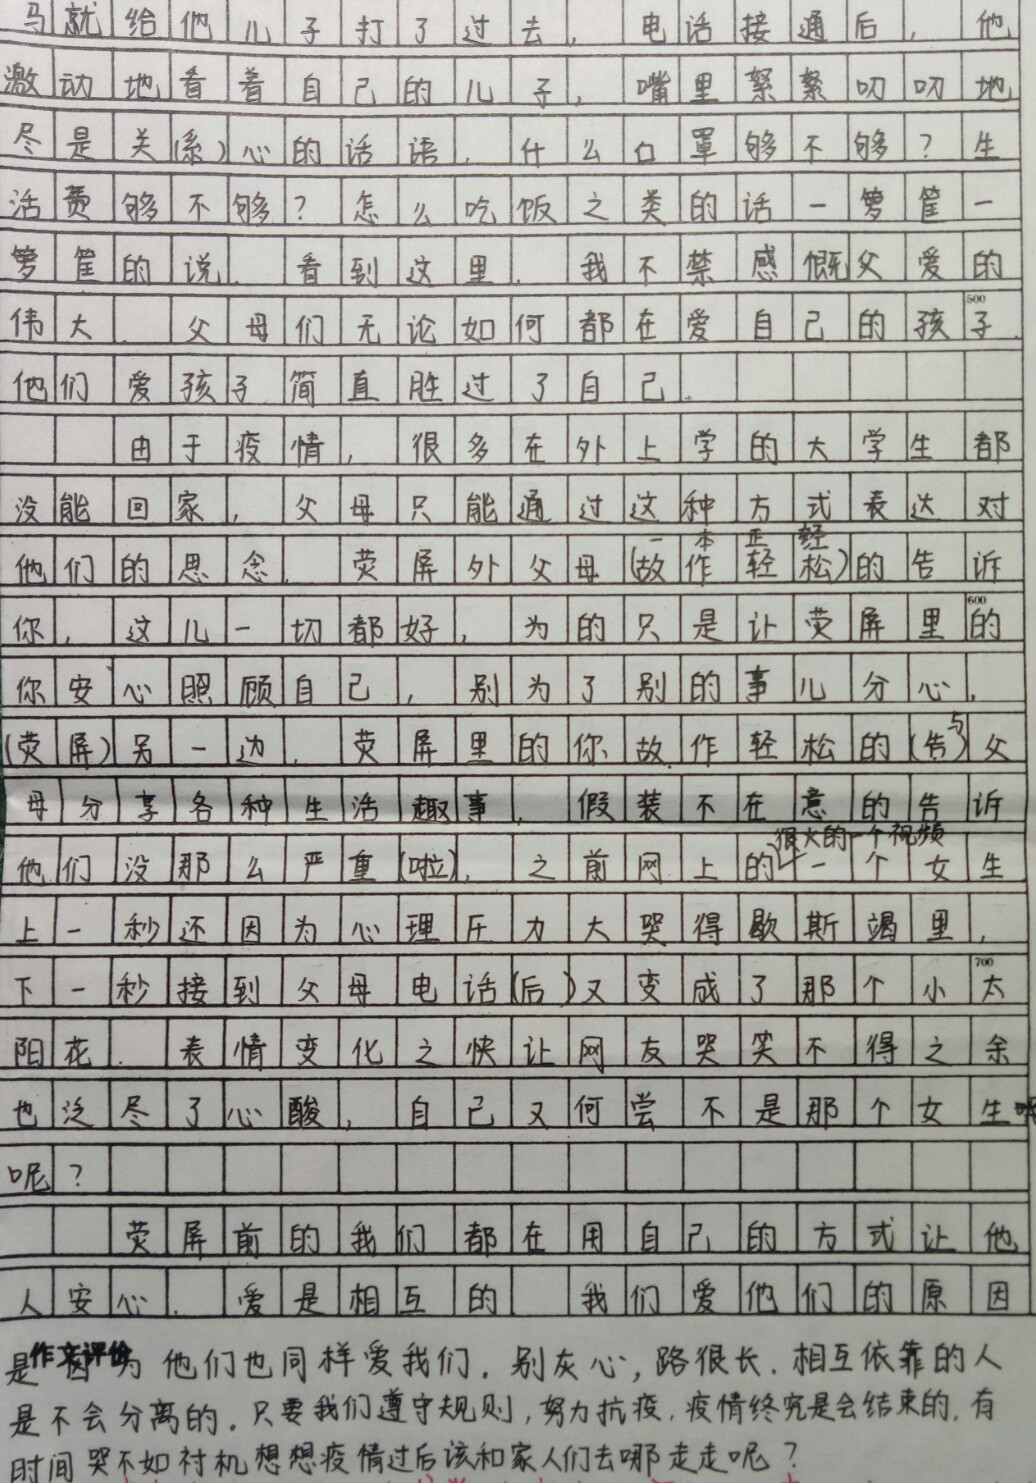 马就给他儿子打了过去，电话接通后，他
激动地看着自己的儿子，嘴里絮絮叨叨地
尽是关(系)心的话语，什么口罩够不够？生
活费够不够？怎么吃饭之类的话一箩筐一
箩筐的说．看到这里．我不禁感慨父爱的
500
伟大．父母们无论如何都在爱自己的孩子．
他们爱孩子简直胜过了自己．
由于疫情，很多在外上学的大学生都
没能回家，父母只能通过这种方式表达对
一本正经
他们的思念．荧屏外父母(故作轻松)的告诉
600
你，这儿一切都好，为的只是让荧屏里的
你安心照顾自己，别为了别的事儿分心．
与
(荧屏)另一边．荧屏里的你故作轻松的(告)父
母分享各种生活趣事，假装不在意的告诉
很火的一个视频
他们没那么严重(啦)．之前网上的一个女生
上一秒还因为心理压力大哭得歇斯竭里，
700
下一秒接到父母电话(后)又变成了那个小太
阳花．表情变化之快让网友哭笑不得之余
也泛尽了心酸，自己又何尝不是那个女生
呢？
荧屏前的我们都在用自己的方式让他
人安心．爱是相互的 我们爱他们的原因
作文评价
是因为他们也同样爱我们．别灰心，路很长．相互依靠的人
是不会分离的．只要我们遵守规则，努力抗疫．疫情终究是会结束的．有
时间哭不如衬机想想疫情过后该和家人们去哪走走呢？